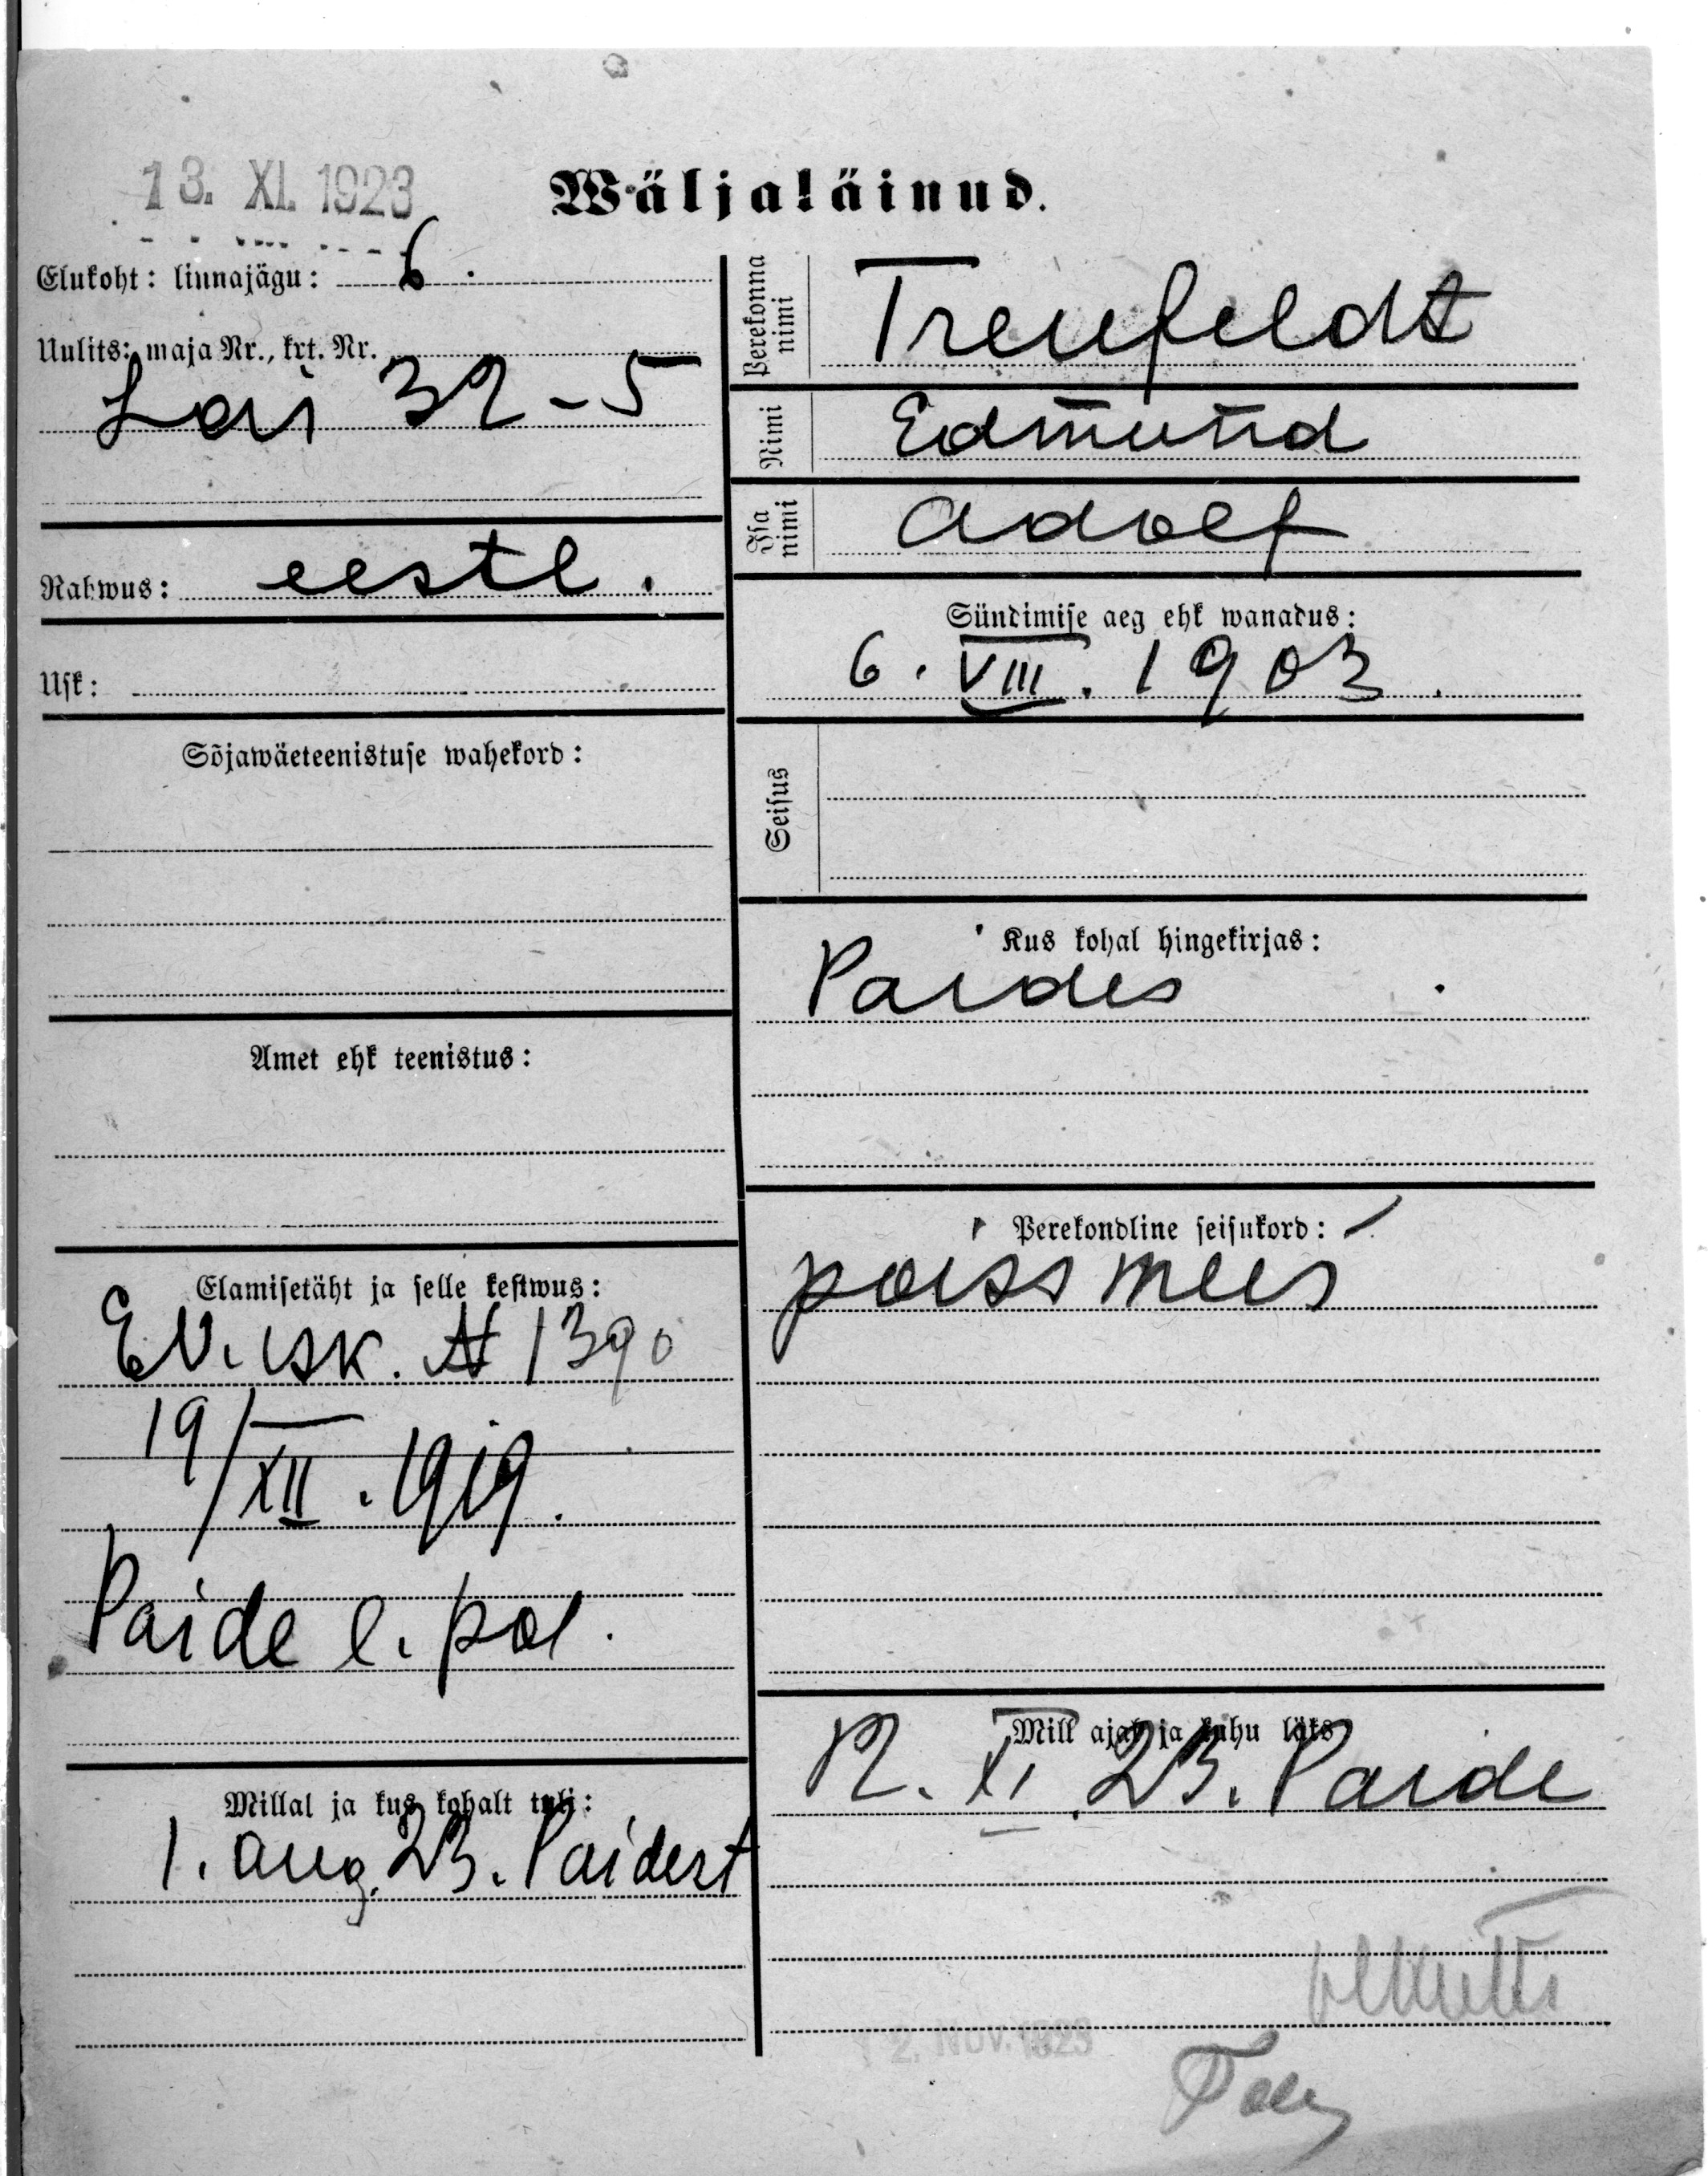 13. XI. 1923
Wäljaläinud.
Elukoht: linnajägu: 6.
Uulits: maja Nr., krt. Nr.
Lai 32-5
Rahwus: eestl.
Usk:
Sõjawäeteenistuse wahekord:
Amet ehk teenistus:
Elamisetäht ja selle kestwus:
E.V. isk. № 1390
19/XII. 1919.
Paide l. pol.
Millal ja kus kohalt tuli:
1. aug. 23. Paidest
Perekonna nimi
Treufeldt
Nimi
Edmund
Isa nimi
Adolf
Sündimise aeg ehk wanadus:
6. VIII. 1903.
Seisus
Kus kohal hingekirjas:
Paides
Perekondline seisukord:
poissmees
Mill ajal ja kuhu läks
12. XI. 23. Paide
12. NOV. 1923